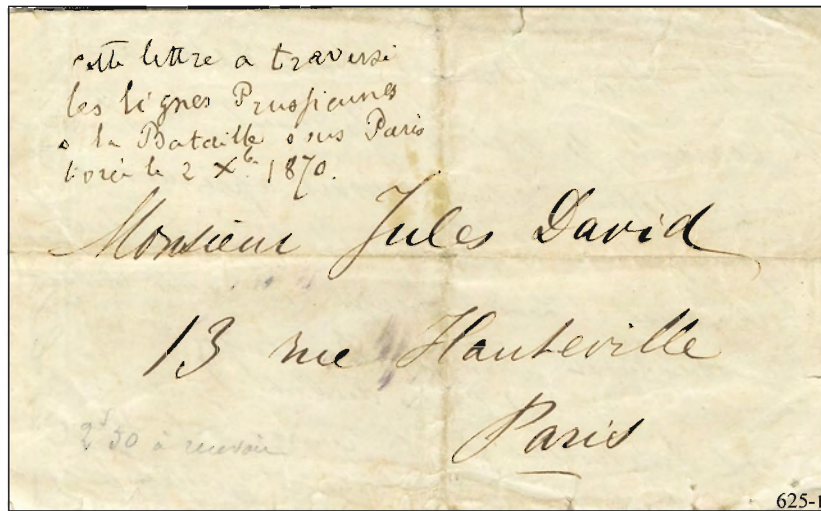 cette lettre a traversé
les lignes Prussiennes
a la Bataille sous Paris
le 2 Xbre 1870.
Monsieur Jules David
13 rue Hauteville
Paris
2f50 à recevoir
625-1